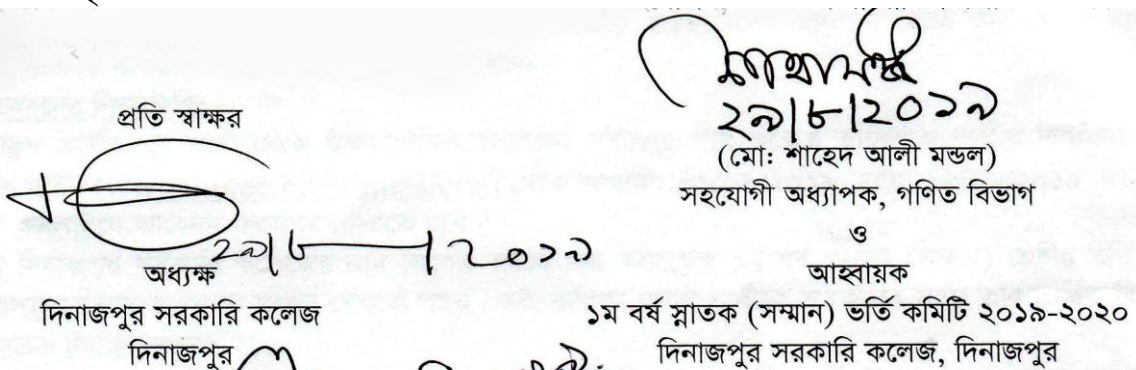 প্রতি স্বাক্ষর
২৯|৮|২০১৯
অধ্যক্ষ
দিনাজপুর সরকারি কলেজ
দিনাজপুর
২৯|৮|২০১৯
(মো: শাহেদ আলী মন্ডল)
সহযোগী অধ্যাপক, গণিত বিভাগ
ও
আহ্বায়ক
১ম বর্ষ স্নাতক (সম্মান) ভর্তি কমিটি ২০১৯-২০২০
দিনাজপুর সরকারি কলেজ, দিনাজপুর